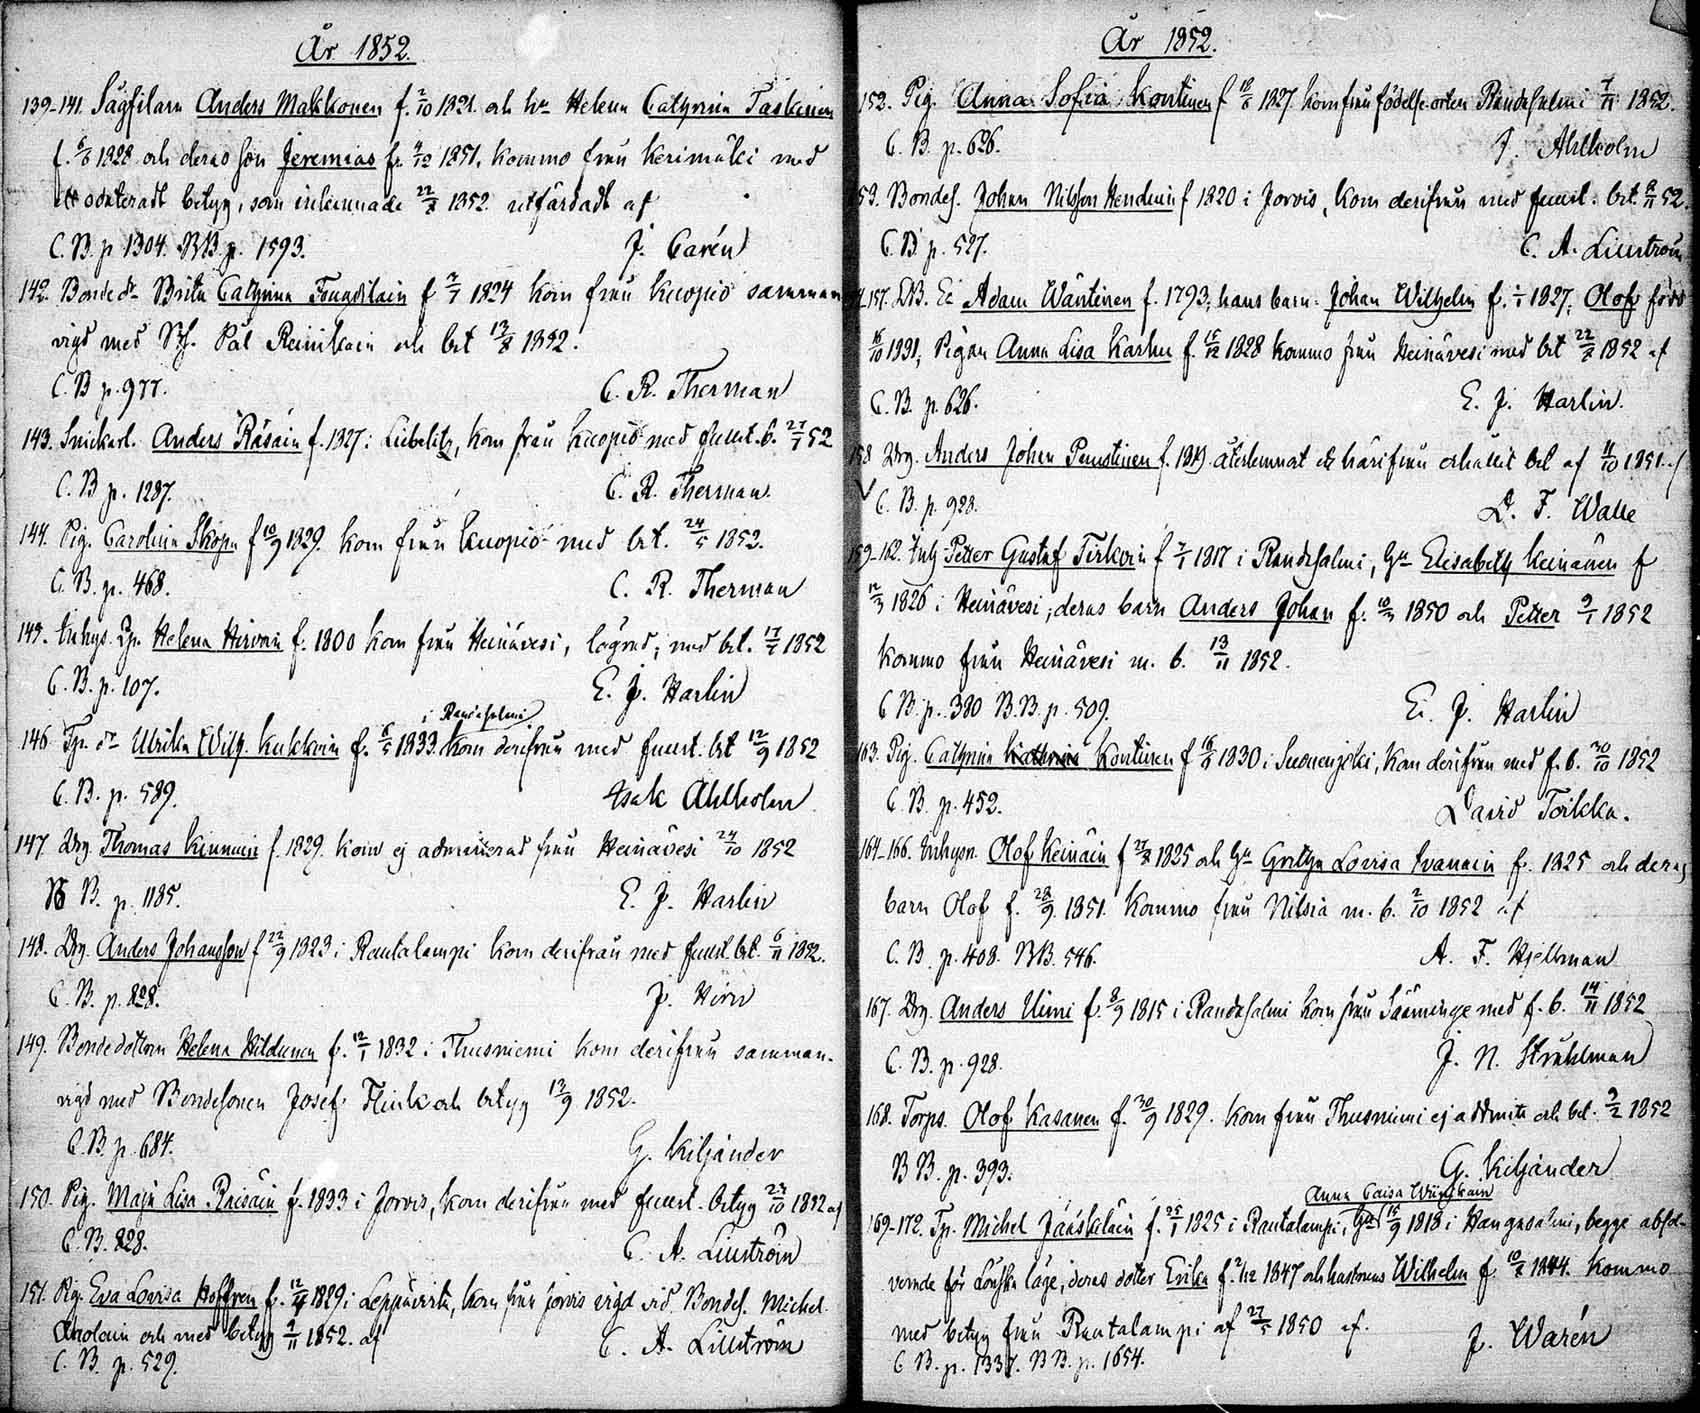 År 1852.
139-141. Sågfilarn Anders Makkonen f. 2/10 1821. och hu Helena Cathrina Taskinen
f. 6/6 1828 och deras son Jeremias fr. 4/12 1851. kommo från Kerimäki med
odateradt betyg, som inlemnade 22/8 1852 utfärdadt af
C. B. p. 1304. BB. p. 1593. J. Carén
142. Bonde dr Brita Cathrina Tougoilain f 2/7 1824 kom från Kuopio samman
vigd med Pål Reinikain och bet 13/8 1852.
C. B p. 977. C. R. Therman
143. Snickarl. Anders Räsäin f. 1827 i Libelitz, kom från Kuopio med frust. b. 27/7 52
C. B p. 1287. C. R. Therman.
144. Pig. Carolina Skopa f 10/9 1829. kom från Kuopio med bet. 24/5 1852.
C. B. p. 468. C. R. Therman
145. Inhys. Dr. Helena Hirvoin f. 1800 kom från Heinävesi, med bet. 17/7 1852
C. B. p. 107. E. J. Harlin
i Randasalmi
146 Tp. dr Ulrika Wilh. Kukkoin f. 5/5 1833. kom derifrån med frust. bet 12/9 1852
C. B. p. 589. Isak Ahlholm
147. Drg. Thomas Kinnunin f. 1829. kom ej admitterad från Heinävesi 24/10 1852
B. p. 1185. E. J. Harlin
148. Drg. Anders Johansson f 22/9 1823 i Rautalampi kom derifrån med frust. bet. 6/11 1852.
C. B. p. 828. J. Hörn
149. Bondedottern Helena Hildunen f. 12/1 1832 i Thusniemi kom derifrån samman-
vigd med Bondesonen Josef Flink och betyg 13/9 1852.
C. B p. 684. G. Kiljander
150. Pig. Maja Lisa Räisäin f. 1833 i Jorois, kom derifrån med frust. betyg 23/10 1852 af
C. B. 828. C. A. Liuström
151. Pig. Eva Lovisa Hoffren f. 1829 i Leppävirta, kom från Jorois vigd vid Bondes. Michel
och med betyg 9/11 1852. af C. A. Liuström
C. B. p. 529.
År 1852.
152. Pig. Anna Sofia Kontinen f 18/6 1827. kom från födelseorten Randasalmi 7/11 1852.
C. B. p. 626. J. Ahlholm
153. Bondes. Johan Nilsson Hendunin f 1820 i Jorois, kom derifrån med frust. bet. 9/11 52.
C. B. p. 527. C. A. Liuström
157. DB. Ec Adam Wäntinen f. 1793, hans barn: Johan Wilhelm f. 1/1 1827. Olof född
16/10 1831, Pigan Anna Lisa Karhu f. 15/12 1828 kommo från Heinävesi med bet 22/8 1852 af
C. B. p. 626. E. J. Harlin.
158 Drg. Anders Johan Puustinen f. 1819 återlemnat et härifrån erhållit bet af 11/10 1851.
C. B. p. 928. D. F. Walle
159-162. Inh Petter Gustaf Tirkoin f 7/1 1817 i Randasalmi, Hu Elisabeth Keinänen f
12/3 1826 i Heinävesi, deras barn Anders Johan f. 10/3 1850 och Petter 9/1 1852
kommo från Heinävesi m. b. 13/11 1852.
C B. p. 380 B. B. p. 509. E. J. Harlin
163. Pig. Cathrina Kontinen f 16/8 1830 i Suonenjoki, kom derifrån med f. b. 30/10 1852
C. B. p. 452. David Toikka.
164-166. Inhysn. Olof Keinäin f 27/8 1825 och Hu Gretha Lovisa Ivanain f. 1825 och deras
barn Olof f. 28/9 1851. kommo från Nilsiä m. b. 2/10 1852 af
C. B. p. 408. BB. 546. A. F. Hjelman
167. Drg. Anders Uimi f. 8/9 1815 i Randasalmi kom från Sääminge med f. b. 14/11 1852
C. B. p. 928. J. N. Stråhlman
168. Torps. Olof Kasanen f. 30/9 1829. kom från Thusniemi ej admitt och bet. 9/2 1852
BB. p. 393. G. Kiljander
Anna Caisa
169-172. Tp. Michel Jääskeläin f. 25/1 1825 i Rautalampi, Hu 15/9 1818 i Hangasalmi, begge absol-
verade för Lönska läge, deras dotter Erika f. 2/12 1847 och hustruns Wilhelm f. 10/8 1844. kommo
med betyg från Rautalampi af 27/5 1850 af. J. Warén
C B. p. 1337. BB. p. 1654.